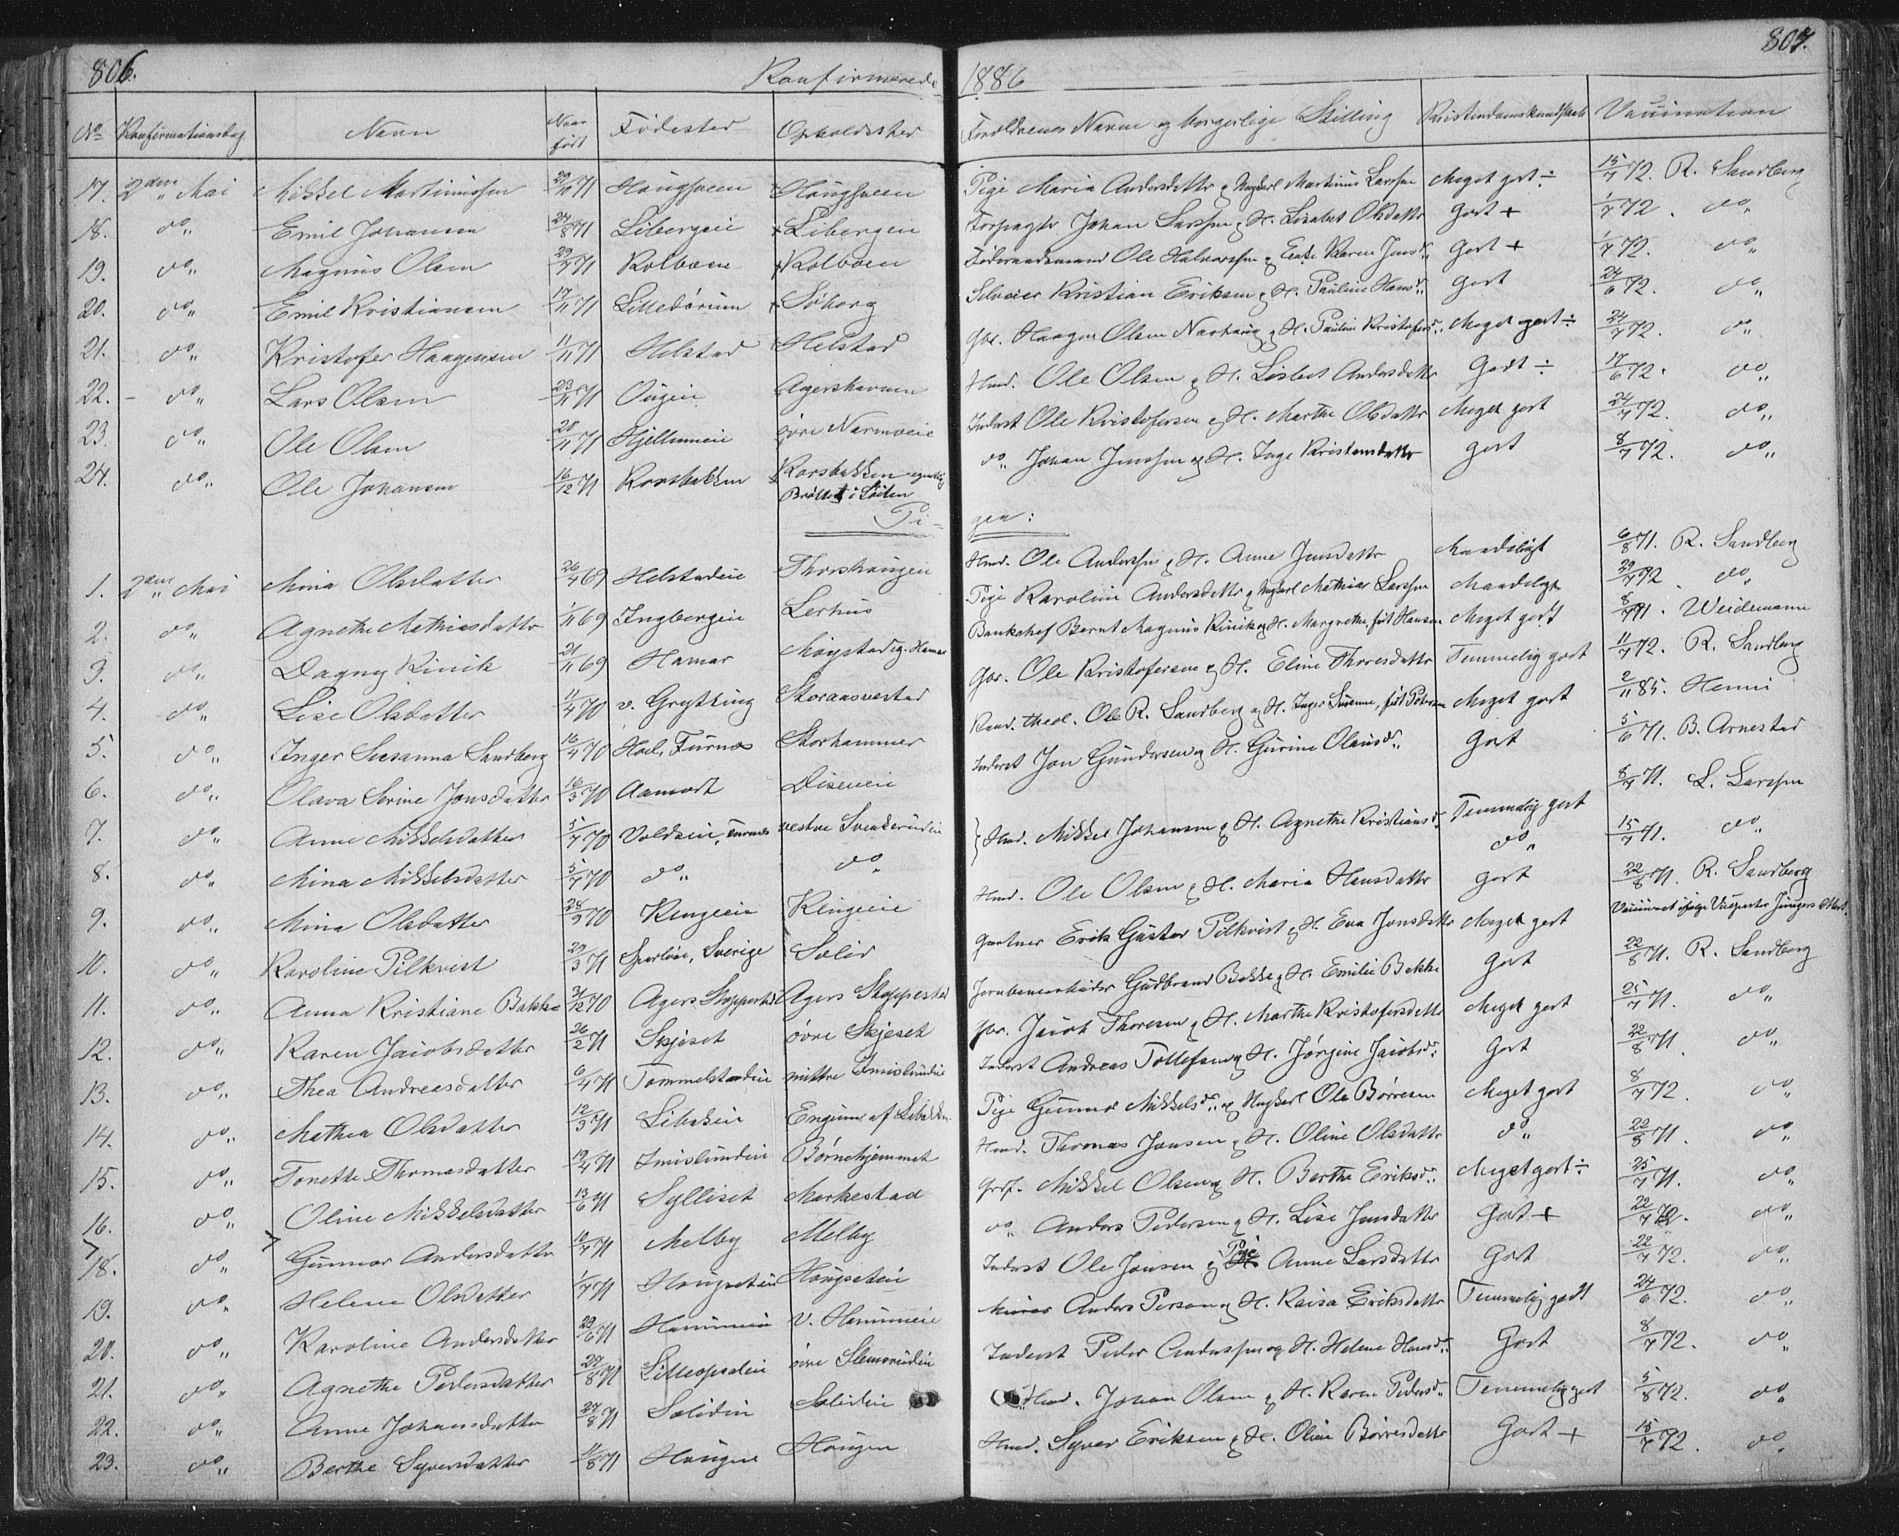 806.
Konfirmerede
1886
807.
No Konfirmationsdag Navn Naar født Fødested Opholdssted Forældrenes Navne og borgerlige Stilling Kristendomskundskab Vaccination
17. 2den Mai Mikkel Martiniussen 29/11 71 Haugsveen Haugsveen Pige Maria Andersdatter og Ungkarl Martinius Larssen Meget godt ÷ 15/7 72. R. Sandberg
18. do„ Emil Johansen 24/8 71 Libergeie + Libergeie Forpagter Johan Larssen og H. Lisabet Olsdatter Godt + 1/7 72. do„
19. do„ Magnus Olsen 29/7 71 Kolboen Kolboen Føderaadsmand Ole Halvorssen og Enke Karen Jens d. Godt + 1/7 72. do„
20. do„ Emil Kristiansen 17/11 71 Lillebørum Søberg Selveier Kristian Eriksen og H. Pauline Hans d. Godt 24/6 72. do„
21. do„ Kristofer Haagensen 11/11 71 Helstad Helstad Gbr. Haagen Olsen og H. Pauline Kristofers d. Meget godt ÷ 24/7 72. do„
22. – do„ Lars Olsen 23/11 71 Ougeie Agershavnen Hmd. Ole Olsen og H. Lisbet Andersdatter Godt ÷ 17/6 72. do„
23. do„ Ole Olsen 28/11 71 Hjellumeie øvre Narmoeie Inderst Ole Kristofersen og H. Marthe Olsdatter Meget godt 24/7 72. do„
24. do„ Ole Johansen 16/12 71 Korsbakken Korsbakken egentlig Brøttet i Løiten do„ Johan Jenssen og H. Inge Kristensdatter Godt 8/7 72. do„
Pi-
gen:
1. 2den Mai Mina Olsdatter 26/4 69 Helstadeie Thorshaugeie Hmd. Ole Anderssen og H. Anne Jensdatter Maadeligt 6/8 71. R. Sandberg
2. do„ Agnethe Mathiasdatter 1/11 69 Ingbergeie Lerhus Pige Karoline Andersdatter og Ungkarl Mathias Larssen Maadeligt 29/7 72. do„
3. do„ Dagny Kinck 21/11 69 Hamar Møystad eg. Hamar Bankchef Bernt Magnus Kinck og H. Margrethe, født Hansen Meget godt 8/7 71. Weidemann
4. do„ Lise Olsdatter 11/4 70 v. Grytting Storaasvestad Gbr. Ole Kristofersen og H. Eline Thoresdatter Temmelig godt 11/7 72. R. Sandberg
5. do„ Inger Susanna Sandberg 16/4 70 Hoel, Furnes Storhammer Kand. theol. Ole R. Sandberg og H. Inger Susanne, født Petersen Meget godt 2/11 85. Henni
6. do„ Olava Serine Jonsdatter 16/3 70 Aamodt Diseneie Inderst Jon Gundersen og H. Gurine Olaus d. Godt 5/6 71. B. Arnestad
7. do„ Anne Mikkelsdatter 5/7 70 Voldseie, Furnes vestre Svenkerudeie } Hmd. Mikkel Johansen og H. Agnethe Kristians d. Temmelig godt 8/7 71. L. Larssen
8. do„ Mina Mikkelsdatter 5/7 70 do„ do„ do„ 15/7 71. do„
9. do„ Mina Olsdatter 28/7 70 Kengeeie Kengeeie Hmd. Ole Olsen og H. Maria Hansdatter Godt 22/8 71. R. Sandberg
10. do„ Karoline Pilkvist 29/3 71 Sparlöse, Sverige Solid Gartner Erik Gustav Pilkvist og H. Eva Jonsdatter Meget godt Vaccineret ifølge Vicepastor Jungers Attest
11. do„ Anna Kristiane Bakke 31/12 70 Agers Stoppested Agers Stoppested Jernbanearbeider Gudbrand Bakke og H. Emilie Bakke Godt 22/8 71. R. Sandberg
12. do„ Karen Jacobsdatter 26/2 71 Skjeset øvre Skjeset Gbr. Jacob Thoresen og H. Marthe Kristofersdatter Meget godt 25/7 71. do„
13. do„ Thea Andreasdatter 6/4 71 Tommelstadeie mittre Imislundeie Inderst Andreas Tollefsen og H. Jørgine Jacobs d. Godt 22/8 71. do„
14. do„ Mathea Olsdatter 12/3 71 Libakeie Engum af Libakken Pige Gunnor Mikkels d. og Ungkarl Ole Børresen Meget godt 8/7 72. do„
15. do„ Tonette Thomasdatter 19/4 71 Imislundeie Børnehjemmet Hmd. Thomas Jonsen og H. Oline Olsdatter do„ 22/8 71. do„
16. do„ Oline Mikkelsdatter 13/6 71 Sylliset Markestad Mikkel Olsen og H. Berthe Eriks d. Meget godt ÷ 25/7 71. do„
7/18. do„ 7 Gunnor Andersdatter 10/7 71 Melby Melby do„ Anders Pedersen og H. Lise Jensdatter Godt + 22/7 72. do„
19. do„ Helene Olsdatter 1/7 71 Haugseteie Haugseteie Inderst Ole Jonsen og Pige Anne Larsdatter Godt 22/7 72. do„
20. do„ Karoline Andersdatter 29/6 71 Hommeie v. Hommeie Anders Person og H. Kaisa Eriksdatter Temmelig godt 24/6 72. do„
21. do„ Agnethe Pedersdatter 27/8 71 Lilleopsaleie øvre Slemsrudeie Inderst Peder Anderssen og H. Helene Hans d. Godt 8/7 72. do„
22. do„ Anne Johansdatter 27/8 71 Solideie Solideie Hmd. Johan Olsen og H. Karen Peders d. Temmelig godt 5/8 72. do„
23. do„ Berthe Syversdatter 11/8 71 Haugen Haugen Hmd. Syver Eriksen og H. Oline Børresdatter Godt + 15/7 72. do„